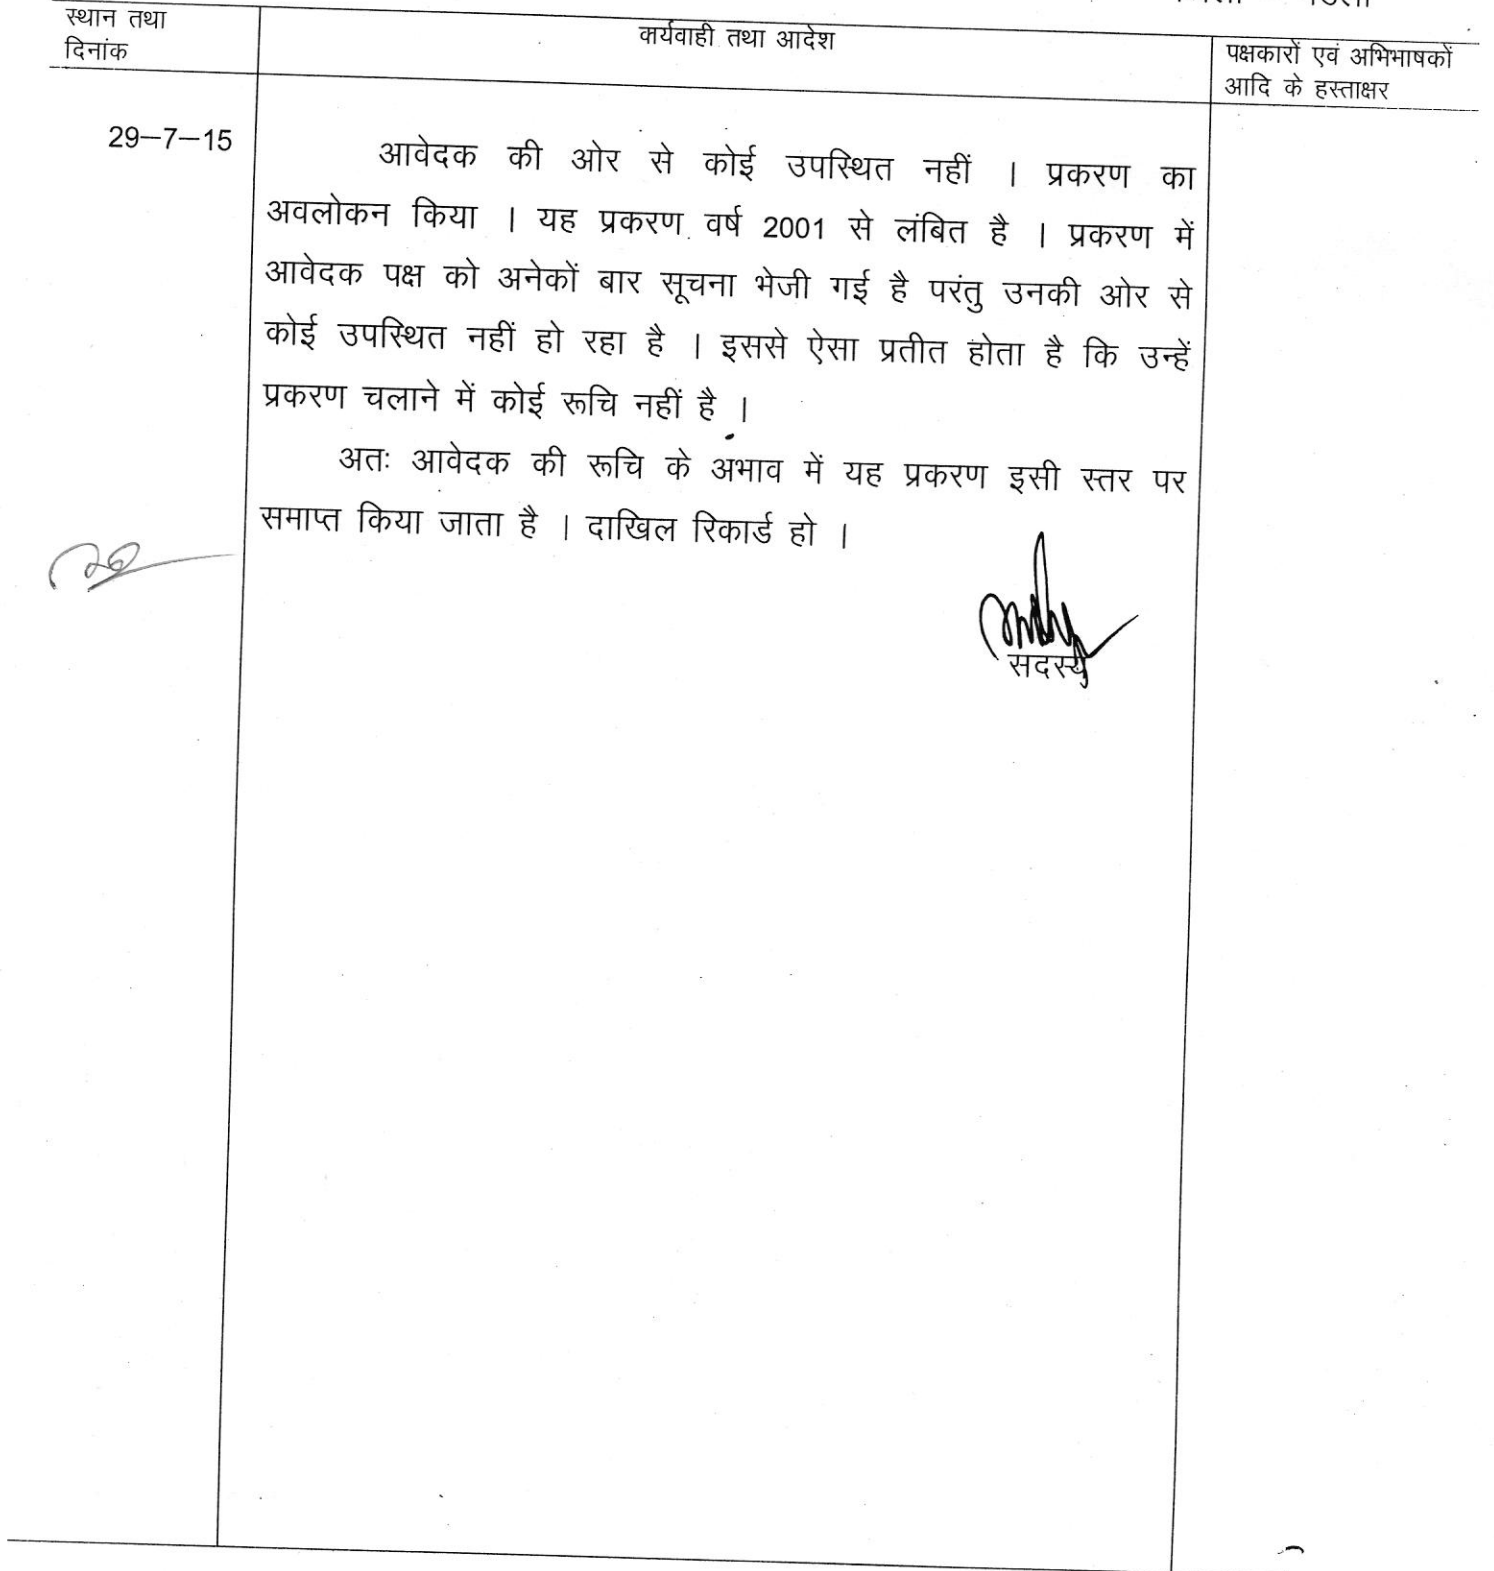 स्थान तथा
दिनांक
कार्यवाही तथा आदेश
पक्षकारों एवं अभिभाषकों
आदि के हस्ताक्षर
29-7-15
आवेदक की ओर से कोई उपस्थित नहीं । प्रकरण का
अवलोकन किया । यह प्रकरण वर्ष 2001 से लंबित है । प्रकरण में
आवेदक पक्ष को अनेकों बार सूचना भेजी गई है परंतु उनकी ओर से
कोई उपस्थित नहीं हो रहा है । इससे ऐसा प्रतीत होता है कि उन्हें
प्रकरण चलाने में कोई रूचि नहीं है ।
अतः आवेदक की रूचि के अभाव में यह प्रकरण इसी स्तर पर
समाप्त किया जाता है । दाखिल रिकार्ड हो ।
सदस्य